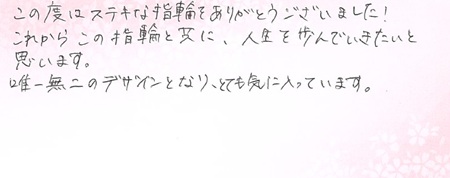 この度はステキな指輪をありがとうございました!
これからこの指輪と共に、人生を歩んでいきたいと
思います。
唯一無二のデザインとなり、とても気に入っています。